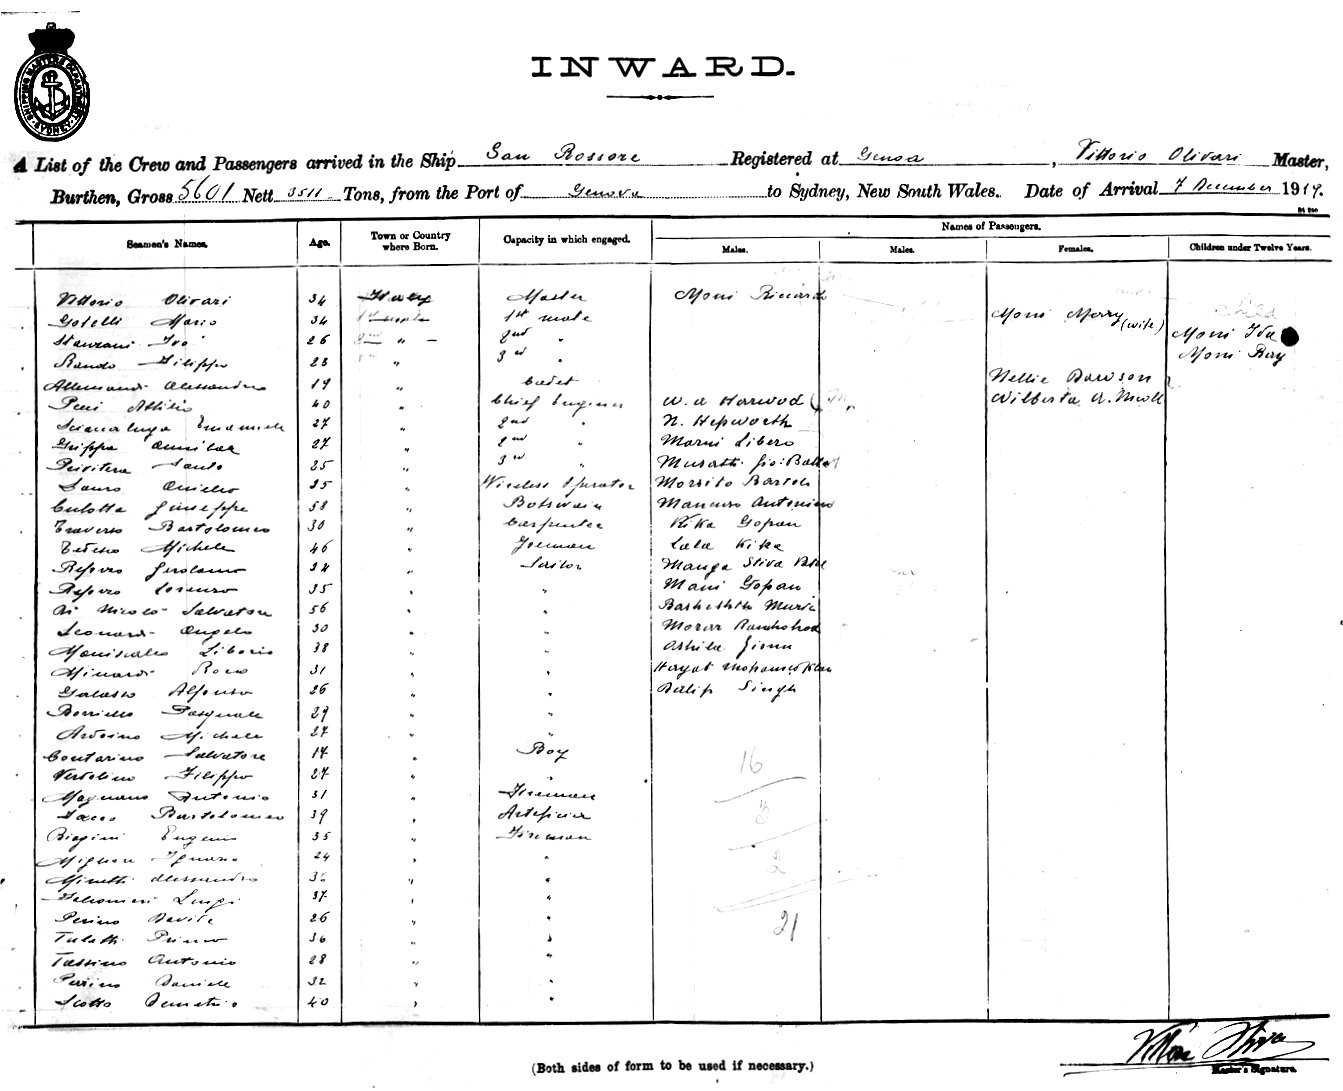 SHIPPING MASTERS DEPARTMENT SYDNEY
INWARD.
A List of the Crew and Passengers arrived in the Ship San Rossore Registered at Genoa, Vittorio Olivari Master,
Burthen, Gross 5601 Nett 3511 Tons, from the Port of Genova to Sydney, New South Wales. Date of Arrival 7 December 1919.
Seamen's Names. Age. Town or Country where Born. Capacity in which engaged. Names of Passengers.
Males. Males. Females. Children under Twelve Years.
Vittorio Olivari 34 Italy Master Moni Riccardo
Gotelli Mario 34 1st mate Moni Merry (wife) child
Stanzani Ivo 26 " 2nd " Moni Ida
Rando Filippo 23 " 3rd " Moni Ray
Allemand Alessandro 19 " Cadet Nellie Dawson
Peri Attilio 40 " Chief Engineer W. A Harwod Wilberta A. Nicoll
Sciaccaluga Emanuele 27 " 2nd " N. Hepworth
Giuppa Annibal 27 " 2nd " Marni Libero
Privitera Santo 25 " 3rd " Musatti Gio: Batta
Sauro Aniello 25 " Wireless Operator Morsito Bartolo
Culotta Giuseppe 58 " Botswain Mancuso Antonino
Traverso Bartolomeo 30 " Carpenter Kika Gopan
Tedesco Michele 46 " Lala Kika
Repovro Gerolamo 34 " Sailor Manga Stiva
Repovro Lorenzo 35 " " Mani Gopan
Di Nicolò Salvatore 56 " "
Leonardi Angelo 30 " " Morar
Maniscalco Liborio 38 " "
Minardi Rocco 31 " " Hayat Mohamed Khan
Galasso Alfonso 26 " " Dalip Singh
Borriello Pasquale 29 " "
Ardoino Michele 27 " "
Contarino Salvatore 17 " Boy
Vertolino Filippo 27 " "
Magnano Antonio 31 " Fireman
Sacco Bartolomeo 39 " Artificier
Biagini Eugenio 35 " Fireman
Migliore Ignazio 24 " "
Minetti Alessandro 36 " "
Luigi 37 " "
Perino Davide 26 " "
Tuletti Primo 36 " "
Tassino Antonio 28 " "
Perrino Daniele 32 " "
Scotto Demetrio 40 " "
16
3
2
21
Master's Signature.
(Both sides of form to be used if necessary.)